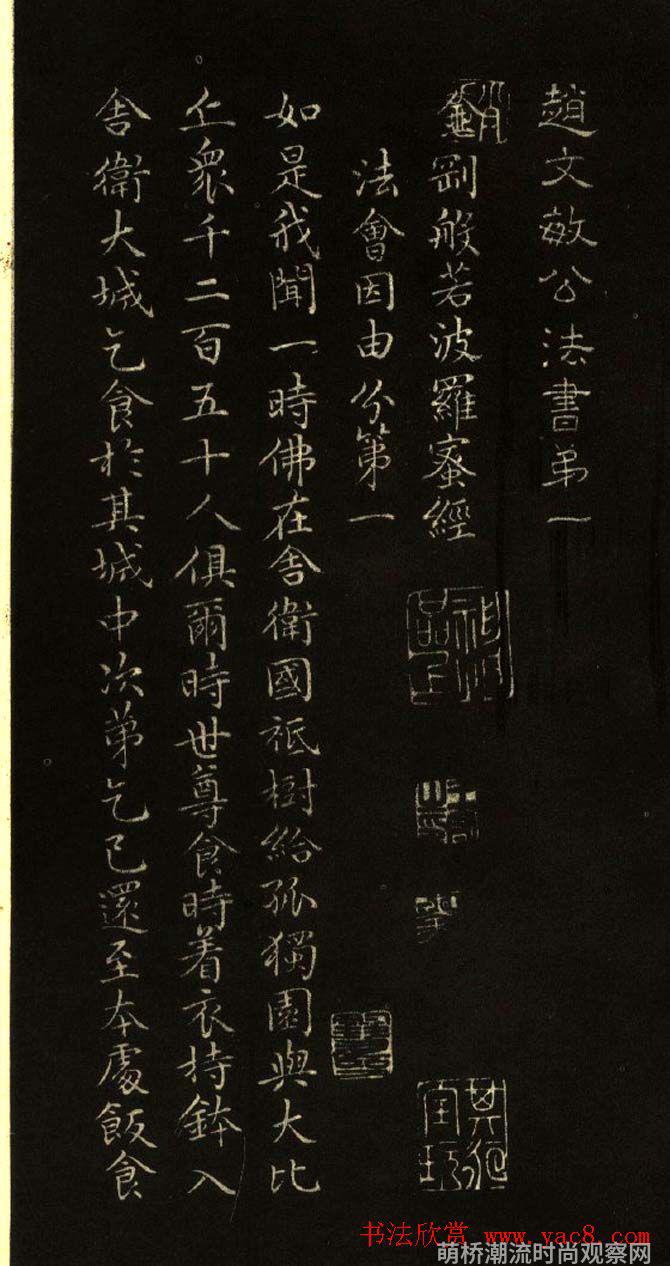 趙文敏公法書弟一
金剛般若波羅蜜經
法會因由分第一
如是我聞一時佛在舍衛國祇樹給孤獨園與大比
丘衆千二百五十人俱爾時世尊食時着衣持鉢入
舍衛大城乞食於其城中次第乞已還至本處飯食
书法欣赏 www.yac8.com
萌桥潮流时尚观察网